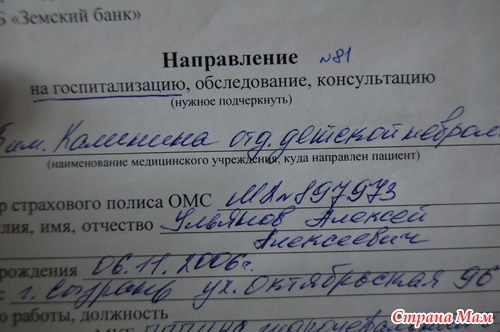 Б «Земский банк»
Направление №81
на госпитализацию, обследование, консультацию
(нужное подчеркнуть)
им. Калинина отд. детской невроло
(наименование медицинского учреждения, куда направлен пациент)
р страхового полиса ОМС МА№897973
лия, имя, отчество Ульянов Алексей
Алексеевич
рождения 06.11.2006г.
с г. Сызрань ул. Октябрьская 9б
о работы, должность
Страна Мам